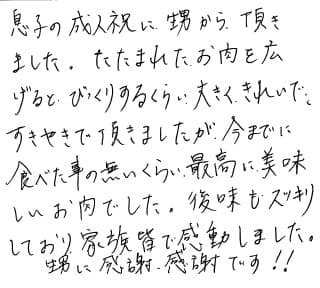 息子の成人祝に 甥から 頂き
ました。たたまれた お肉を広
げると びっくりするくらい 大きく きれいで、
すきやきで 頂きましたが 今までに
食べた事の無いくらい 最高に 美味
しい お肉でした。後味も スッキリ
しており 家族皆で感動しました。
甥に 感謝、感謝です!!